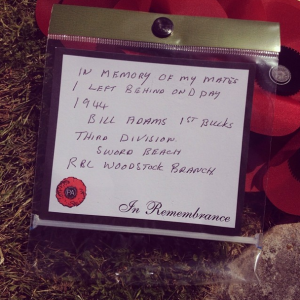 IN MEMORY OF MY MATES
I LEFT BEHIND ON D DAY
1944
BILL ADAMS 1ST BUCKS
THIRD DIVISION
SWORD BEACH
RBL WOODSTOCK BRANCH
PA
In Remembrance